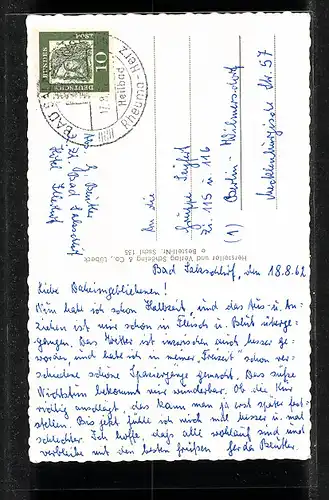 Bad Salzschlirf, den 18.8.62
Liebe Daheimgebliebenen!
Nun habe ich schon Halbzeit, und das Aus- u. An-
ziehen ist mir schon in Fleisch u. Blut überge-
gangen. Das Wetter ist inzwischen auch besser ge-
worden und habe ich in meiner "Freizeit" schon ver-
schiedene schöne Spaziergänge gemacht. Das süße
Nichtstun bekommt mir wunderbar. Ob die Kur
richtig anschlägt, das kann man ja erst später fest-
stellen. Bis jetzt fühle ich mich mal besser u. mal
schlechter. Ich hoffe, daß alle wohlauf sind und
verbleibe mit den besten Grüßen
An die
Gruppe
Zi. 115 u. 116
(1) Berlin-Wilmersdorf
Mecklenburgische Str. 57
Abs. G.
Zt. Bad Salzschlirf
Hotel
Hersteller und Verlag Schöning & Co., Lübeck
Bestell-Nr.
DEUTSCHE
10
BAD
Heilbad
Rheuma - Herz